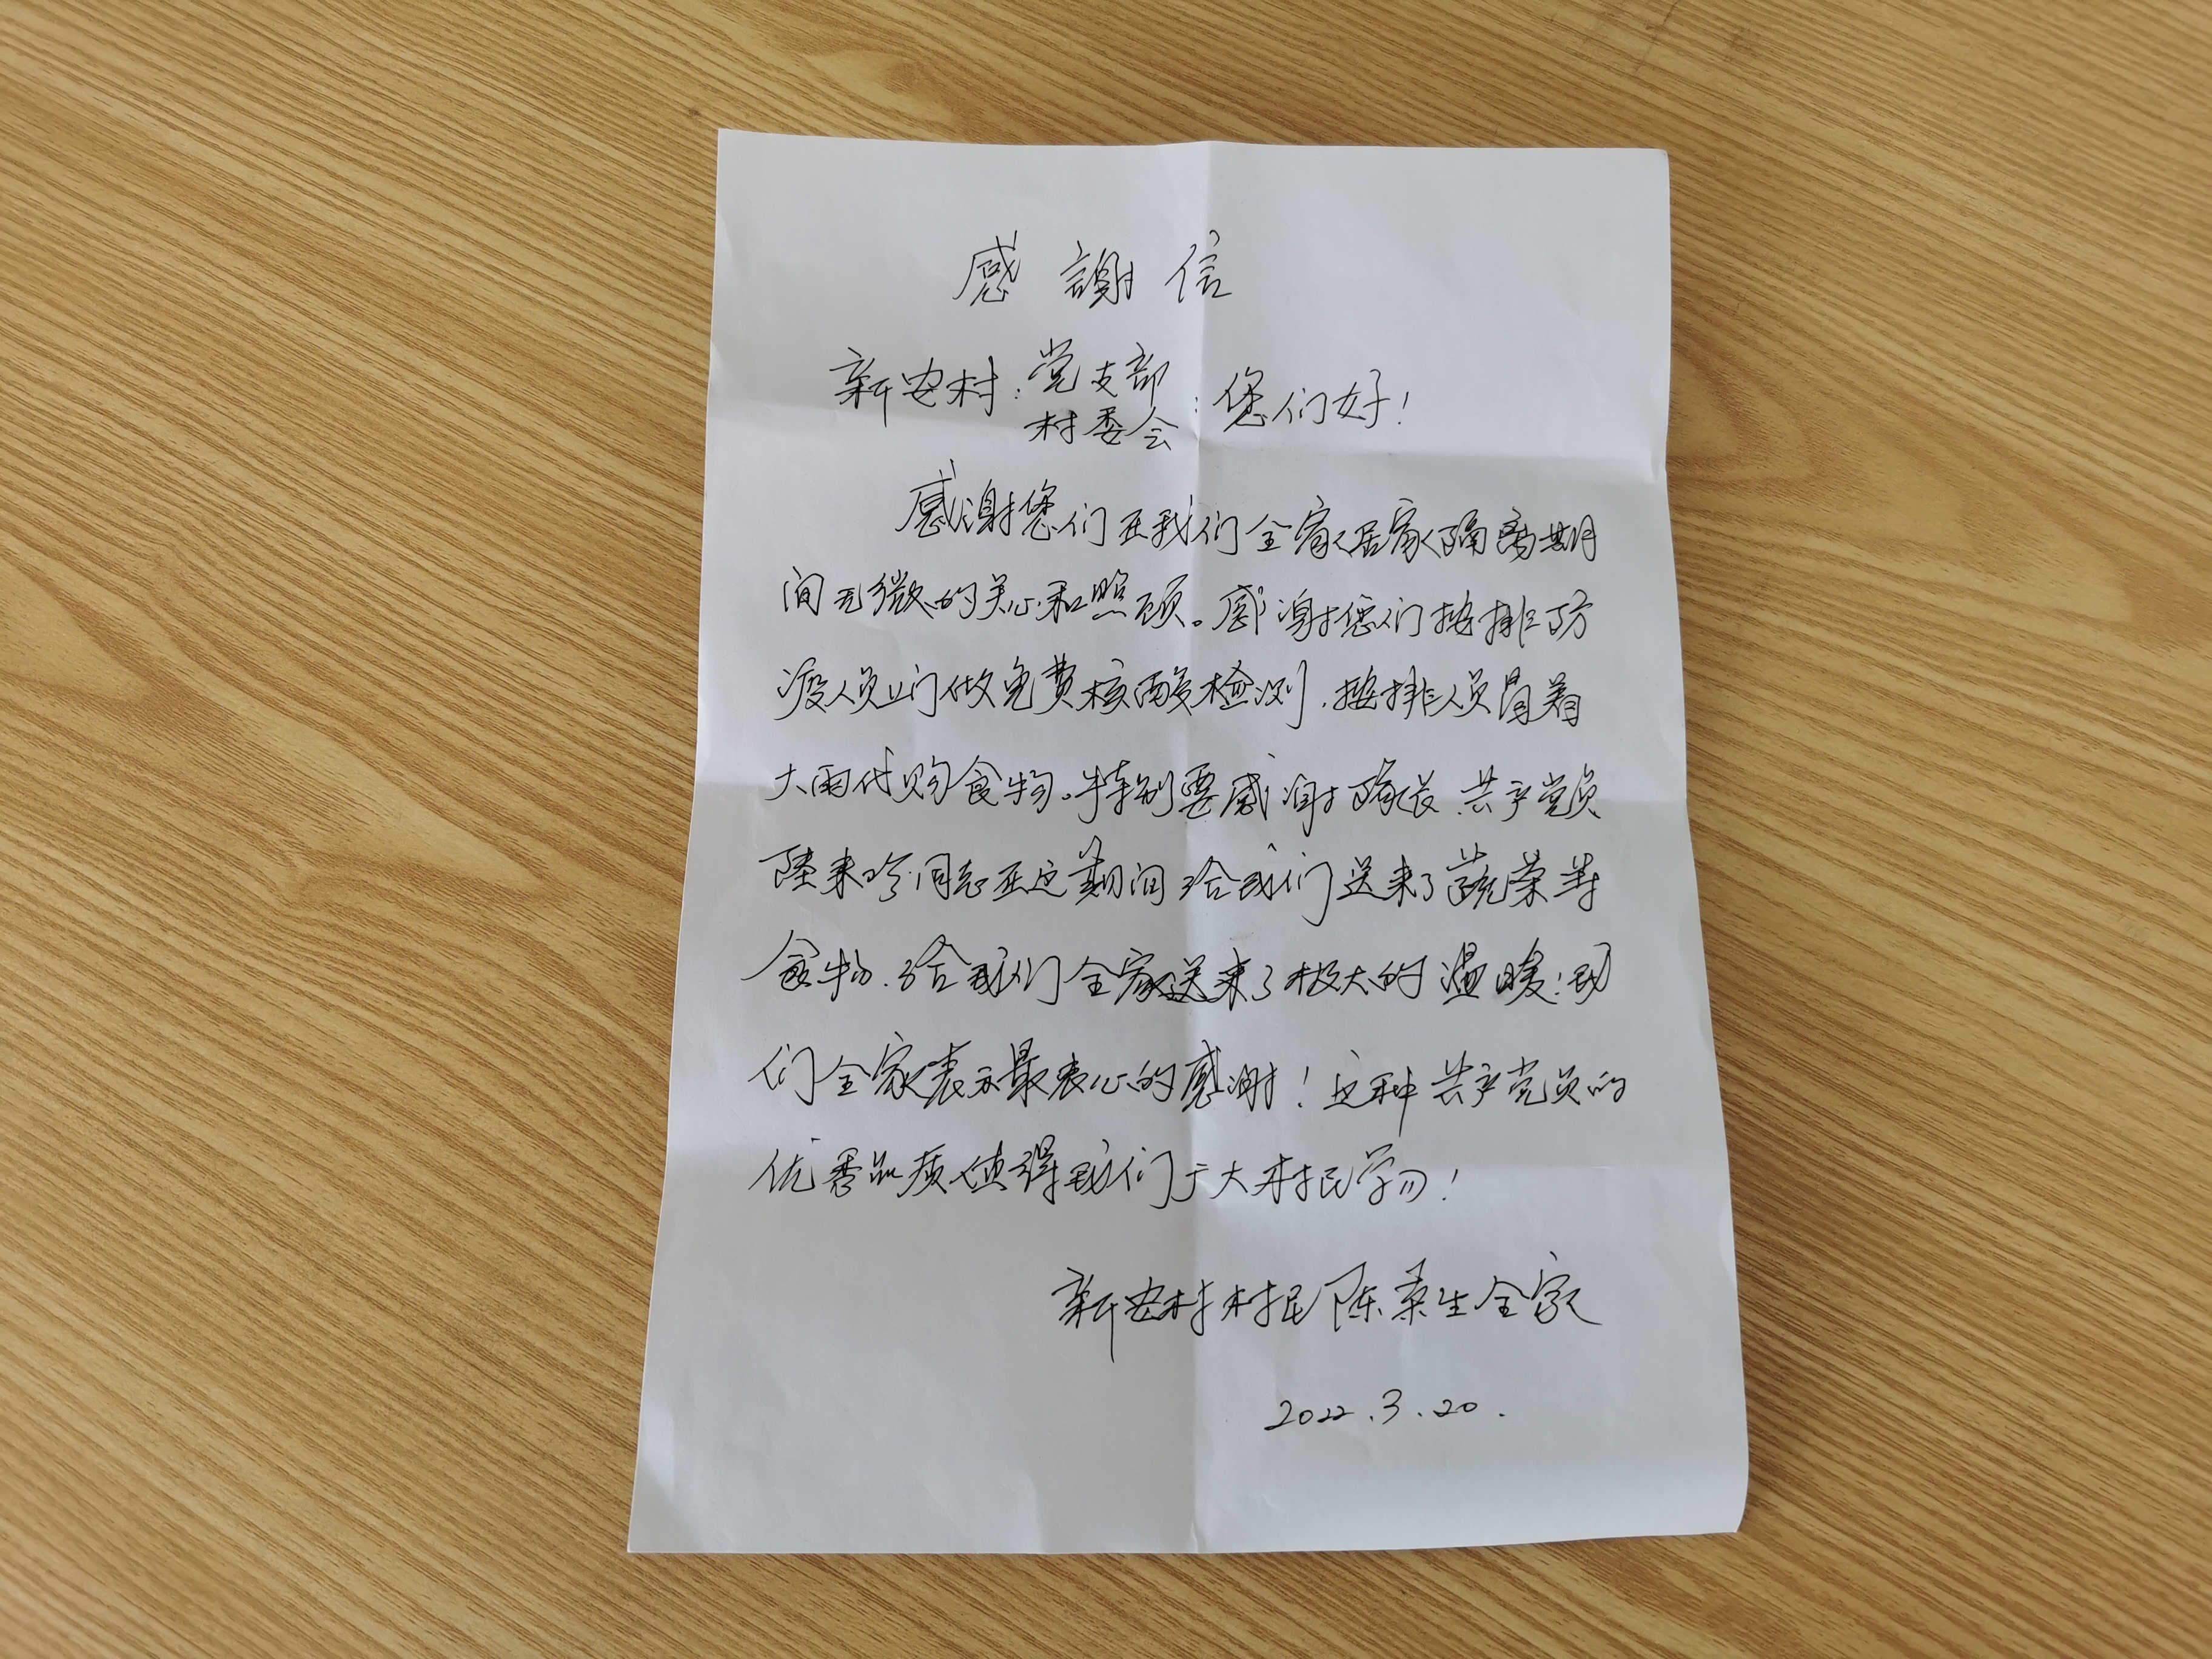 感謝信
新安村：党支部
村委会：您们好！
感谢您们在我们全家居家隔离期
间无微的关心和照顾。感谢您们按排防
疫人员上门做免费核酸检测，按排人员冒着
大雨代购食物。特别要感谢队长、共产党员
陸来 同志在这期间给我们送来了蔬菜等
食物，给我们全家送来了极大的温暖！我
们全家表示最衷心的感谢！这种共产党员的
优秀品质值得我们广大村民学习！
新安村村民陈桑生全家
2022.3.20.